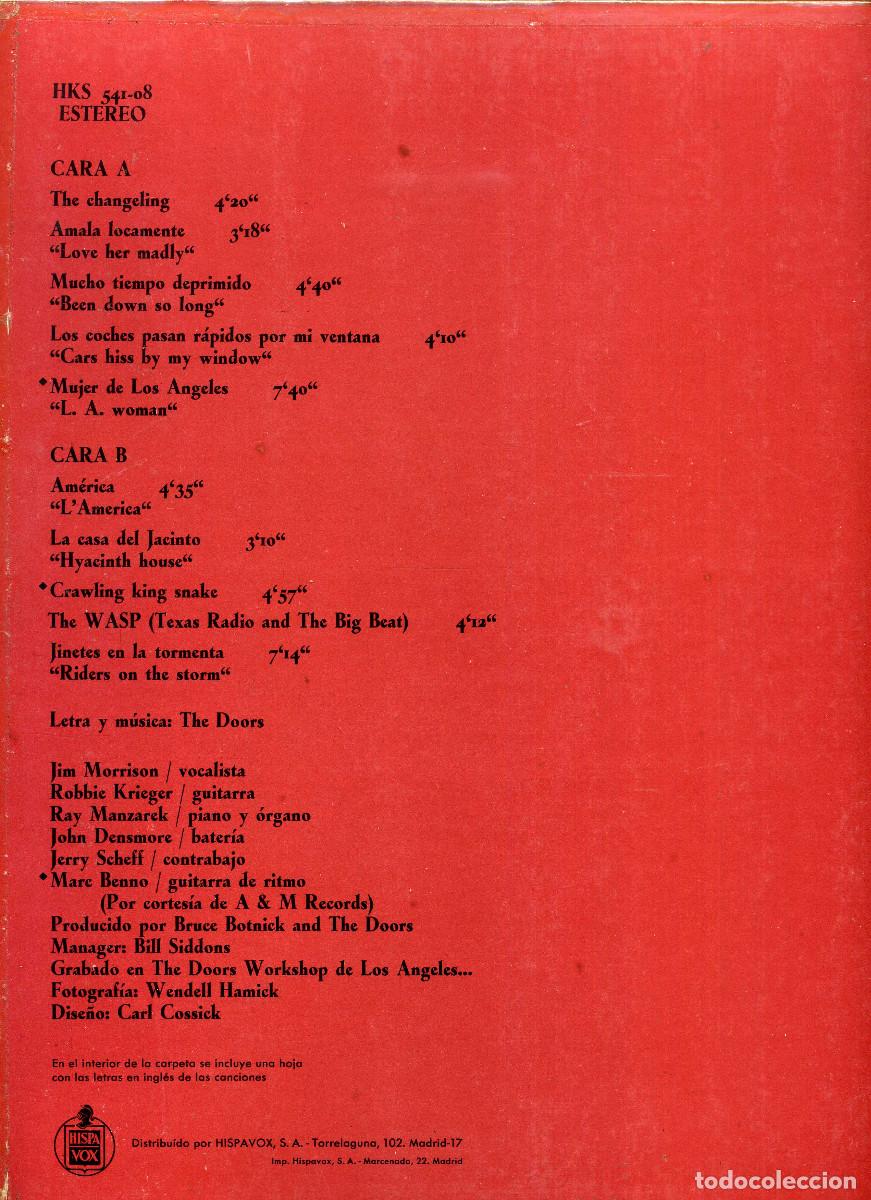 HKS 541-08
ESTEREO
CARA A
The changeling 4‘20“
Amala locamente 3‘18“
“Love her madly“
Mucho tiempo deprimido 4‘40“
“Been down so long“
Los coches pasan rápidos por mi ventana 4‘10“
“Cars hiss by my window“
◆Mujer de Los Angeles 7‘40“
“L. A. woman“
CARA B
América 4‘35“
“L’America“
La casa del Jacinto 3‘10“
“Hyacinth house“
◆Crawling king snake 4‘57“
The WASP (Texas Radio and The Big Beat) 4‘12“
Jinetes en la tormenta 7‘14“
“Riders on the storm“
Letra y música: The Doors
Jim Morrison / vocalista
Robbie Krieger / guitarra
Ray Manzarek / piano y órgano
John Densmore / batería
Jerry Scheff / contrabajo
◆Marc Benno / guitarra de ritmo
(Por cortesía de A & M Records)
Producido por Bruce Botnick and The Doors
Manager: Bill Siddons
Grabado en The Doors Workshop de Los Angeles...
Fotografía: Wendell Hamick
Diseño: Carl Cossick
En el interior de la carpeta se incluye una hoja
con las letras en inglés de las canciones
HISPA
VOX
Distribuído por HISPAVOX, S. A. - Torrelaguna, 102. Madrid-17
Imp. Hispavox, S. A. - Marcenado, 22. Madrid
todocoleccion